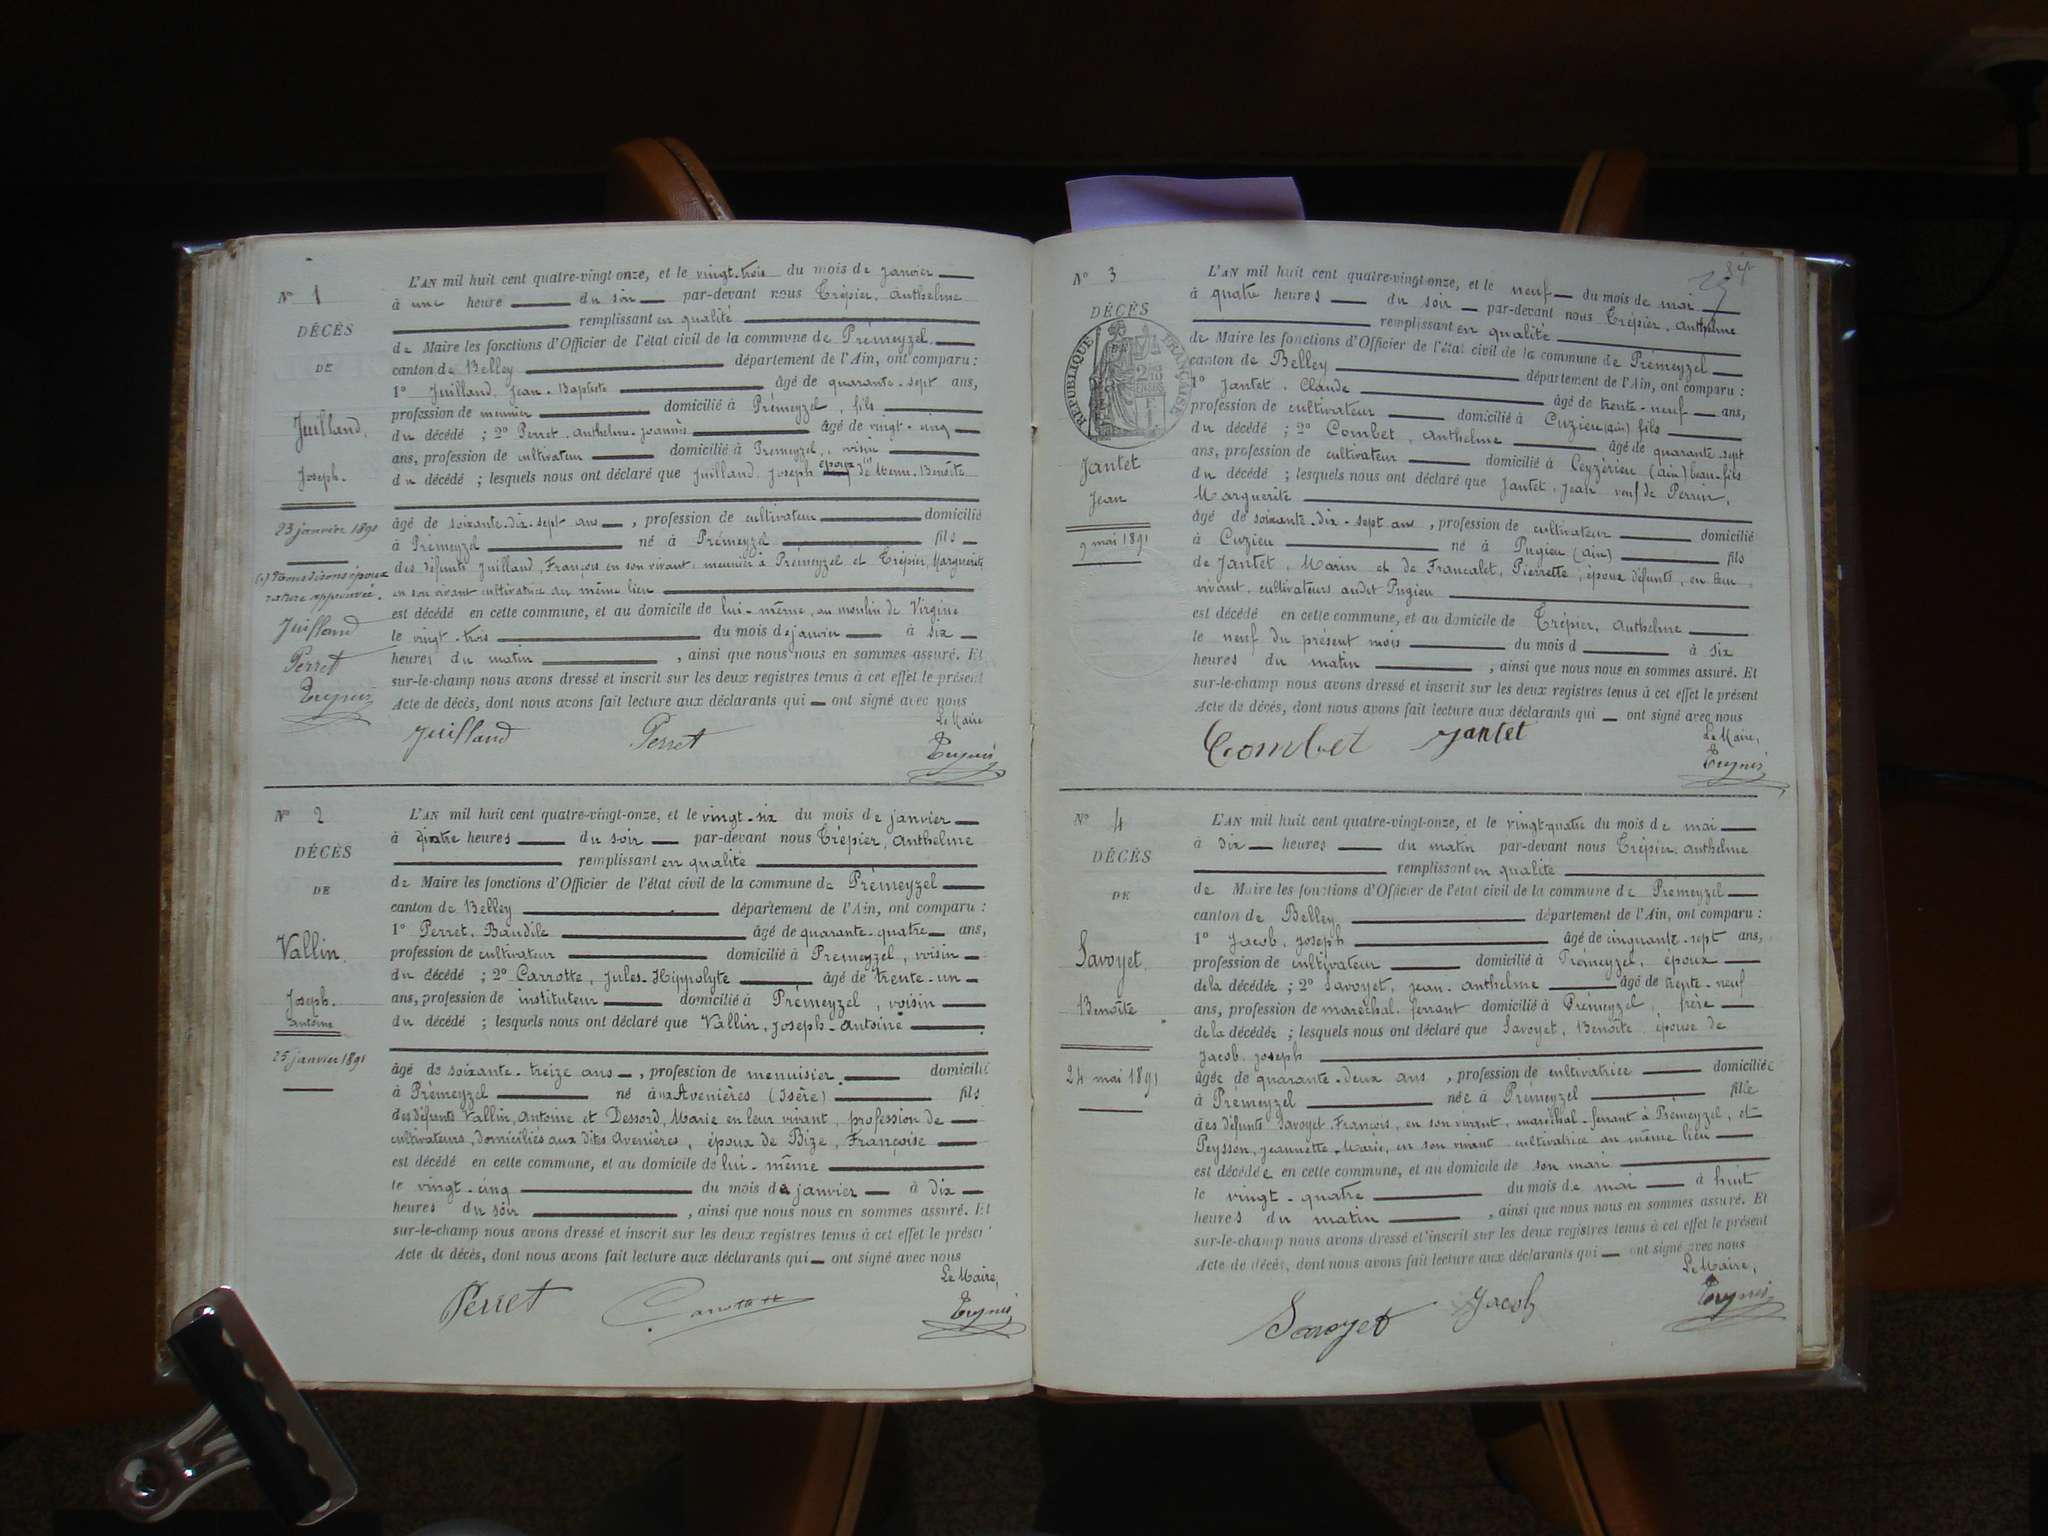 N° 1
DÉCÈS
DE
Juilland,
Joseph.
23 janvier 1891
(1) Nous disons époux
rature approuvée.
Juilland
Perret
L'AN mil huit cent quatre-vingt onze, et le vingt-trois du mois de janvier
à une heure du soir par-devant nous Trépier, Anthelme
remplissant en qualité
de Maire les fonctions d'Officier de l'état civil de la commune de Prémeyzel
canton de Belley département de l'Ain, ont comparu :
1° Juilland, Jean-Baptiste âgé de quarante-sept ans,
profession de meunier domicilié à Prémeyzel, fils
du décédé ; 2° Perret, Anthelme-Joannès âgé de vingt-cinq
ans, profession de cultivateur domicilié à Premeyzel, voisin
du décédé ; lesquels nous ont déclaré que Juilland, Joseph époux de Benoîte
âgé de soixante-dix-sept ans, profession de cultivateur domicilié
à Prémeyzel né à Prémeyzel fils
des défunts Juilland, François en son vivant, meunier à Prémeyzel et Trépier, Marguerite
en son vivant cultivatrice au même lieu
est décédé en cette commune, et au domicile de lui-même, au moulin de Virgine
le vingt-trois du mois de janvier à six
heures du matin, ainsi que nous nous en sommes assuré. Et
sur-le-champ nous avons dressé et inscrit sur les deux registres tenus à cet effet le présent
Acte de décès, dont nous avons fait lecture aux déclarants qui ont signé avec nous
Le Maire
Juilland Perret
N° 2
DÉCÈS
DE
Vallin,
Joseph-
Antoine
25 janvier 1891
L'AN mil huit cent quatre-vingt-onze, et le vingt-six du mois de janvier
à quatre heures du soir par-devant nous Trépier, Anthelme
remplissant en qualité
de Maire les fonctions d'Officier de l'état civil de la commune de Prémeyzel
canton de Belley département de l'Ain, ont comparu :
1° Perret, Baudile âgé de quarante-quatre ans,
profession de cultivateur domicilié à Premeyzel, voisin
du décédé ; 2° Carrotte, Jules-Hippolyte âgé de trente-un
ans, profession de instituteur domicilié à Prémeyzel, voisin
du décédé ; lesquels nous ont déclaré que Vallin, Joseph-Antoine
âgé de soixante-treize ans, profession de menuisier domicilié
à Prémeyzel né aux Avenières (Isère) fils
des défunts Vallin, Antoine et Dessord, Marie en leur vivant, profession de
cultivateurs, domiciliés aux dites Avenières, époux de Bize, Françoise
est décédé en cette commune, et au domicile de lui-même
le vingt-cinq du mois de janvier à dix
heures du soir, ainsi que nous nous en sommes assuré. Et
sur-le-champ nous avons dressé et inscrit sur les deux registres tenus à cet effet le présent
Acte de décès, dont nous avons fait lecture aux déclarants qui ont signé avec nous
Le Maire,
Perret Carrotte
N° 3
DÉCÈS
RÉPUBLIQUE FRANÇAISE
Jantet
Jean
9 mai 1891
L'AN mil huit cent quatre-vingt-onze, et le neuf du mois de mai
à quatre heures du soir par-devant nous Trépier, Anthelme
remplissant en qualité
de Maire les fonctions d'Officier de l'état civil de la commune de Prémeyzel
canton de Belley département de l'Ain, ont comparu :
1° Jantet, Claude âgé de trente-neuf ans,
profession de cultivateur domicilié à Cuzieu (Ain) fils
du décédé ; 2° Combet, Anthelme âgé de quarante-sept
ans, profession de cultivateur domicilié à Ceyzérieu (Ain) beau-fils
du décédé ; lesquels nous ont déclaré que Jantet, Jean veuf de Perrin,
Marguerite
âgé de soixante-dix-sept ans, profession de cultivateur domicilié
à Cuzieu né à Pugieu (Ain) fils
de Jantet, Marin et de Francalet, Pierrette, époux défunts, en leur
vivant, cultivateurs audit Pugieu
est décédé en cette commune, et au domicile de Trépier, Anthelme
le neuf du présent mois du mois d à six
heures du matin, ainsi que nous nous en sommes assuré. Et
sur-le-champ nous avons dressé et inscrit sur les deux registres tenus à cet effet le présent
Acte de décès, dont nous avons fait lecture aux déclarants qui ont signé avec nous
Le Maire,
Combet Jantet
N° 4
DÉCÈS
DE
Savoyet,
Benoîte
24 mai 1891
L'AN mil huit cent quatre-vingt-onze, et le vingt-quatre du mois de mai
à dix heures du matin par-devant nous Trépier, Anthelme
remplissant en qualité
de Maire les fonctions d'Officier de l'état civil de la commune de Prémeyzel
canton de Belley département de l'Ain, ont comparu :
1° Jacob, Joseph âgé de cinquante-sept ans,
profession de cultivateur domicilié à Prémeyzel, époux
de la décédée ; 2° Savoyet, Jean-Anthelme âgé de trente-neuf
ans, profession de maréchal-ferrant domicilié à Prémeyzel, frère
de la décédée ; lesquels nous ont déclaré que Savoyet, Benoîte épouse de
Jacob, Joseph
âgée de quarante-deux ans, profession de cultivatrice domiciliée
à Prémeyzel née à Prémeyzel fille
des défunts Savoyet, François, en son vivant, maréchal-ferrant à Prémeyzel, et
Peysson, Jeannette-Marie, en son vivant cultivatrice au même lieu
est décédée en cette commune, et au domicile de son mari
le vingt-quatre du mois de mai à huit
heures du matin, ainsi que nous nous en sommes assuré. Et
sur-le-champ nous avons dressé et inscrit sur les deux registres tenus à cet effet le présent
Acte de décès, dont nous avons fait lecture aux déclarants qui ont signé avec nous
Le Maire,
Savoyet Jacob